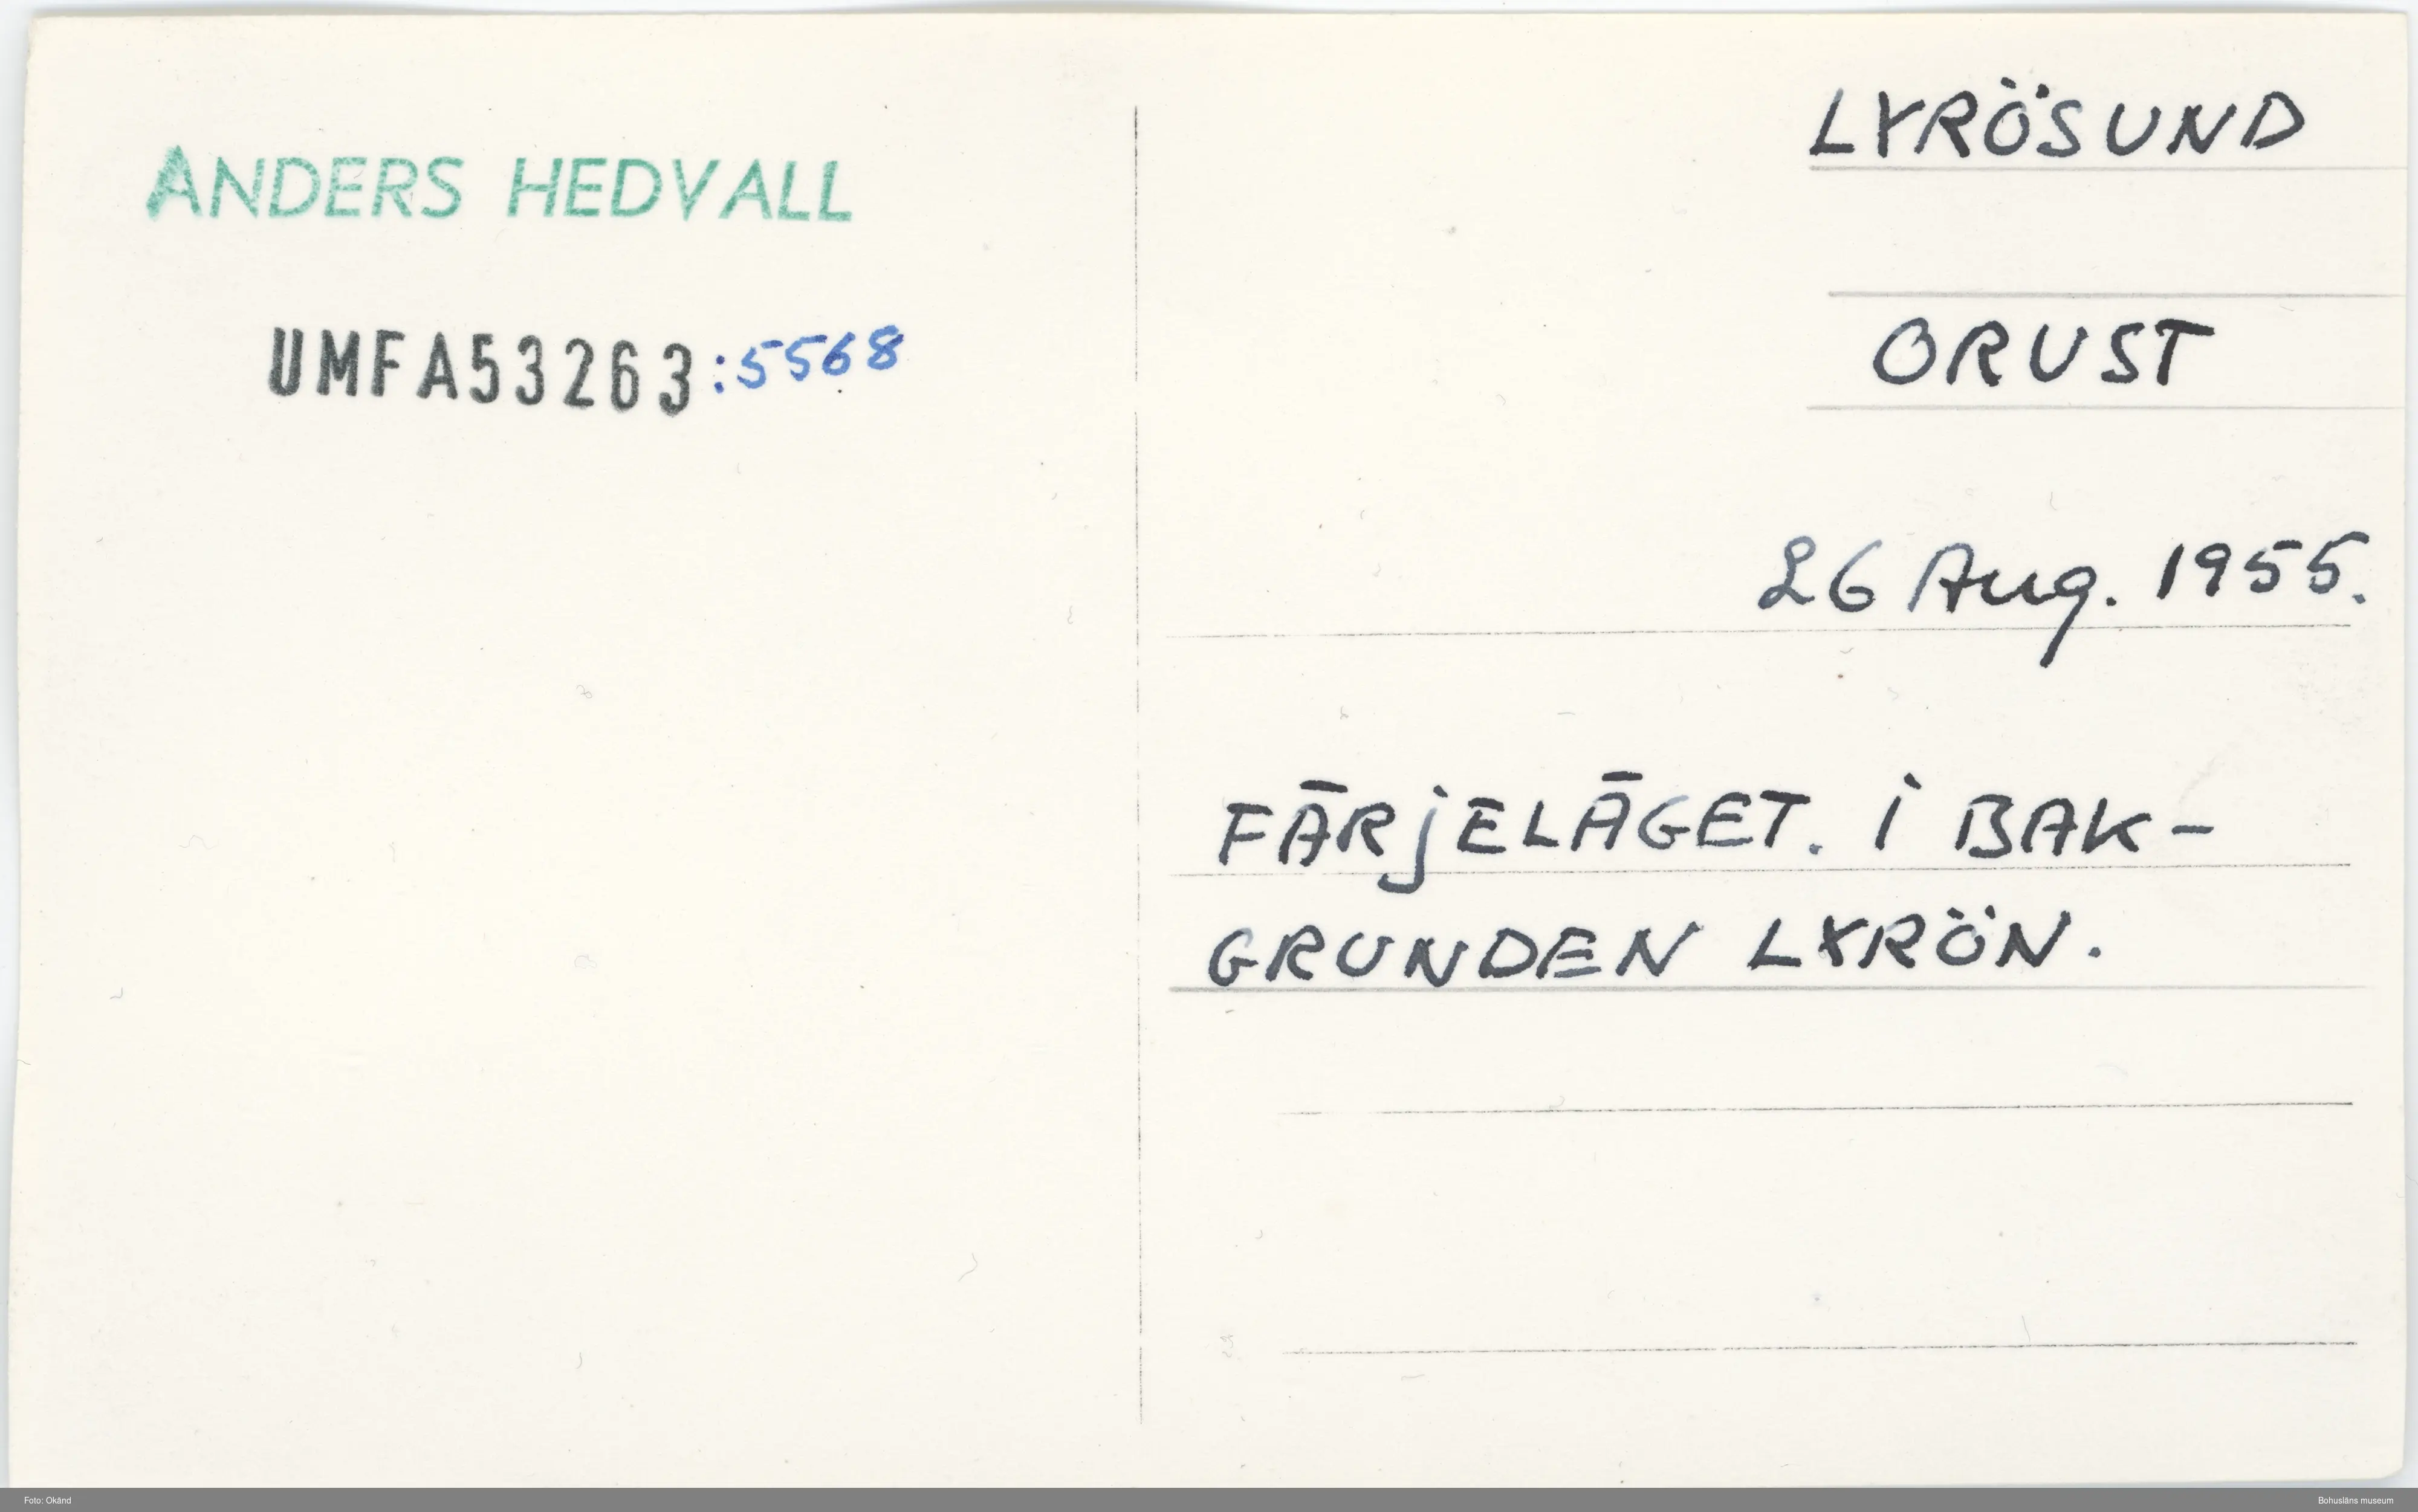 ANDERS HEDVALL
UMFA53263:5568
LYRÖSUND
ORUST
26 Aug. 1955.
FÄRjELÄGET. i BAK-
GRUNDEN LYRÖN.
Foto: Okänd
Bohusläns museum